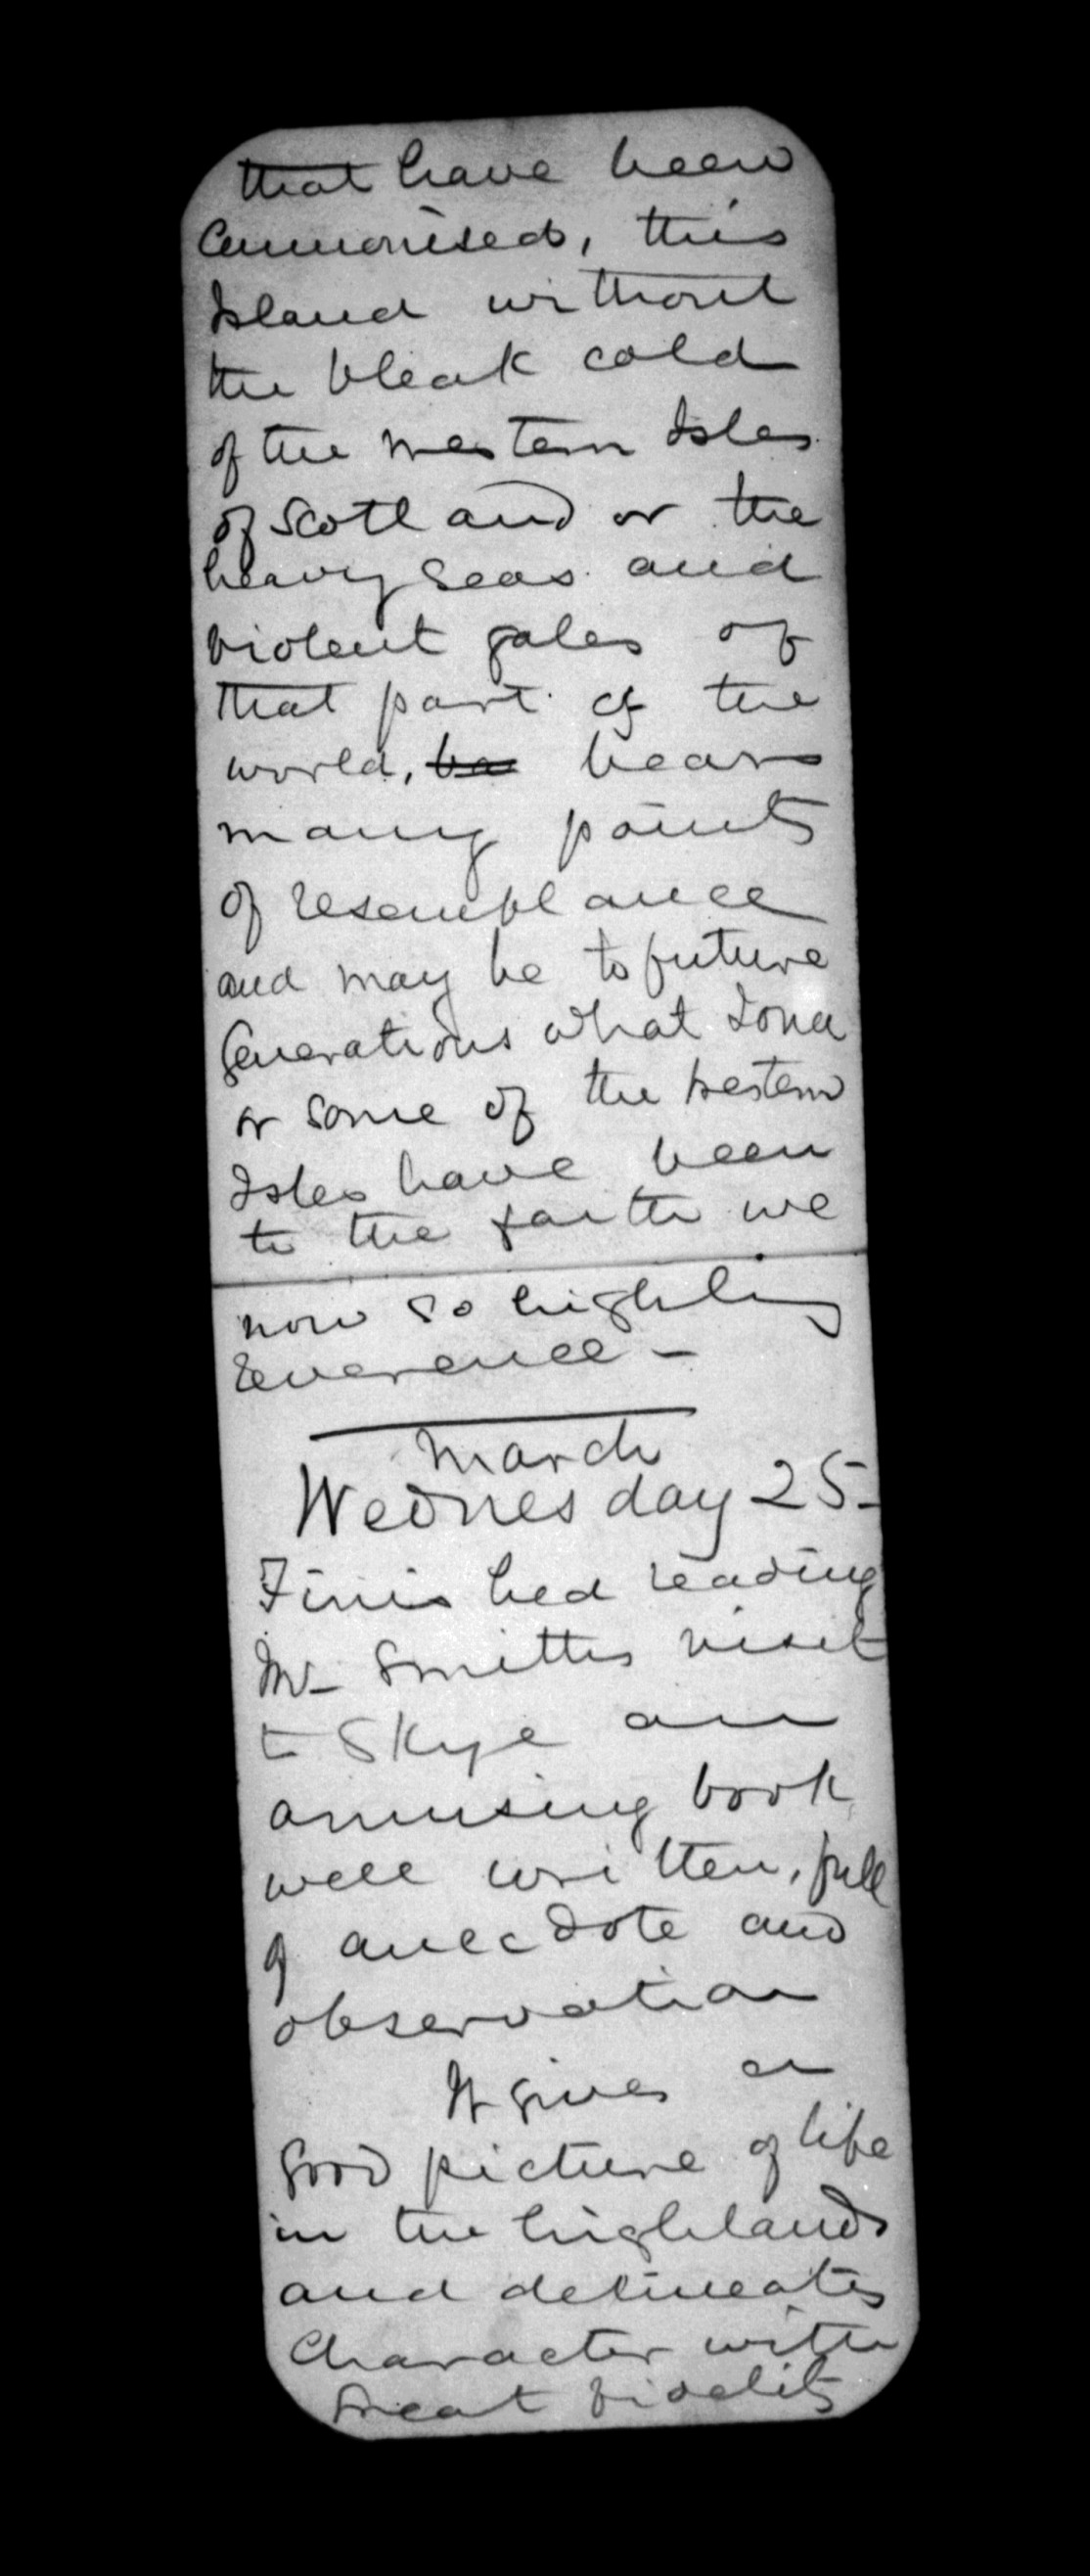 that have been
Cannonised, this
Island without
the bleak cold
of the western Isles
of Scotland or the
heavy seas and
violent gales of
that part of the
world, bears
many points
of resemblance
and may be to future
generations what Iona
or some of the western
Isles have been
to the faith we
now so highly
reverence -
March
Wednesday 25-
Finished reading
Mr Smiths visit
to Skye an
amusing book
well written, full
of anecdote and
observation
It gives a
good picture of life
in the highlands
and delineates
Character with
great fidelity